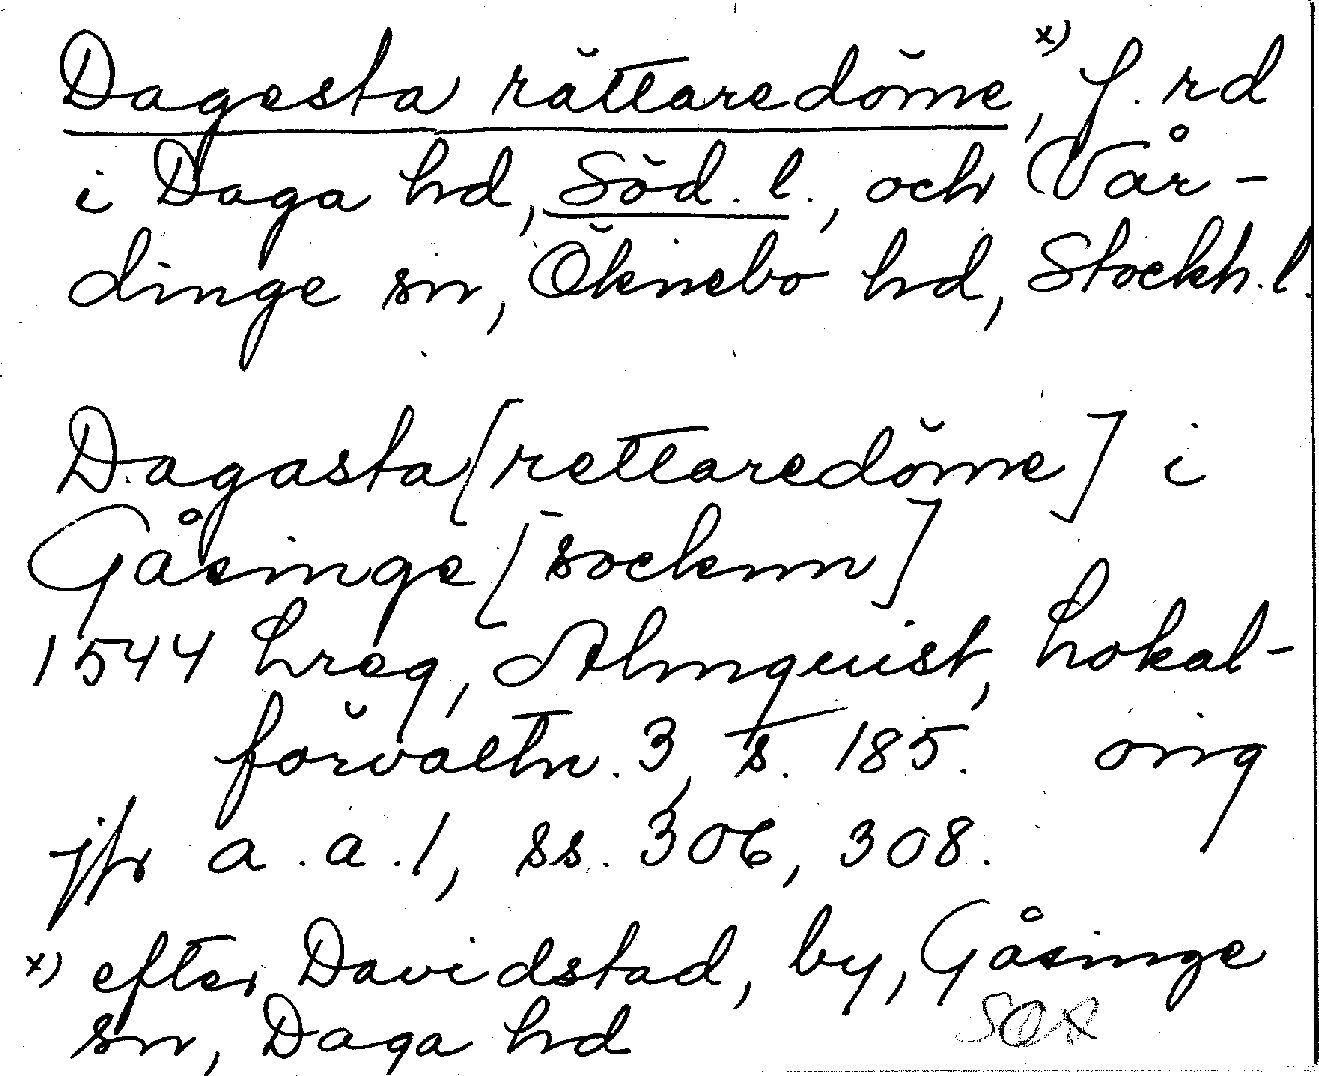 Dagesta rättaredöme x), f. rd
i Daga hd, Söd. l., och Vår-
dinge sn, Öknebo hd, Stockh. l.
Dagasta [rettaredöme] i
Gåsinge [socknn]
1544 hreg, Almquist, Lokal-
förvaltn. 3, s. 185. orig
jfr a.a. 1, ss. 306, 308.
x) efter Davidstad, by, Gåsinge
sn, Daga hd